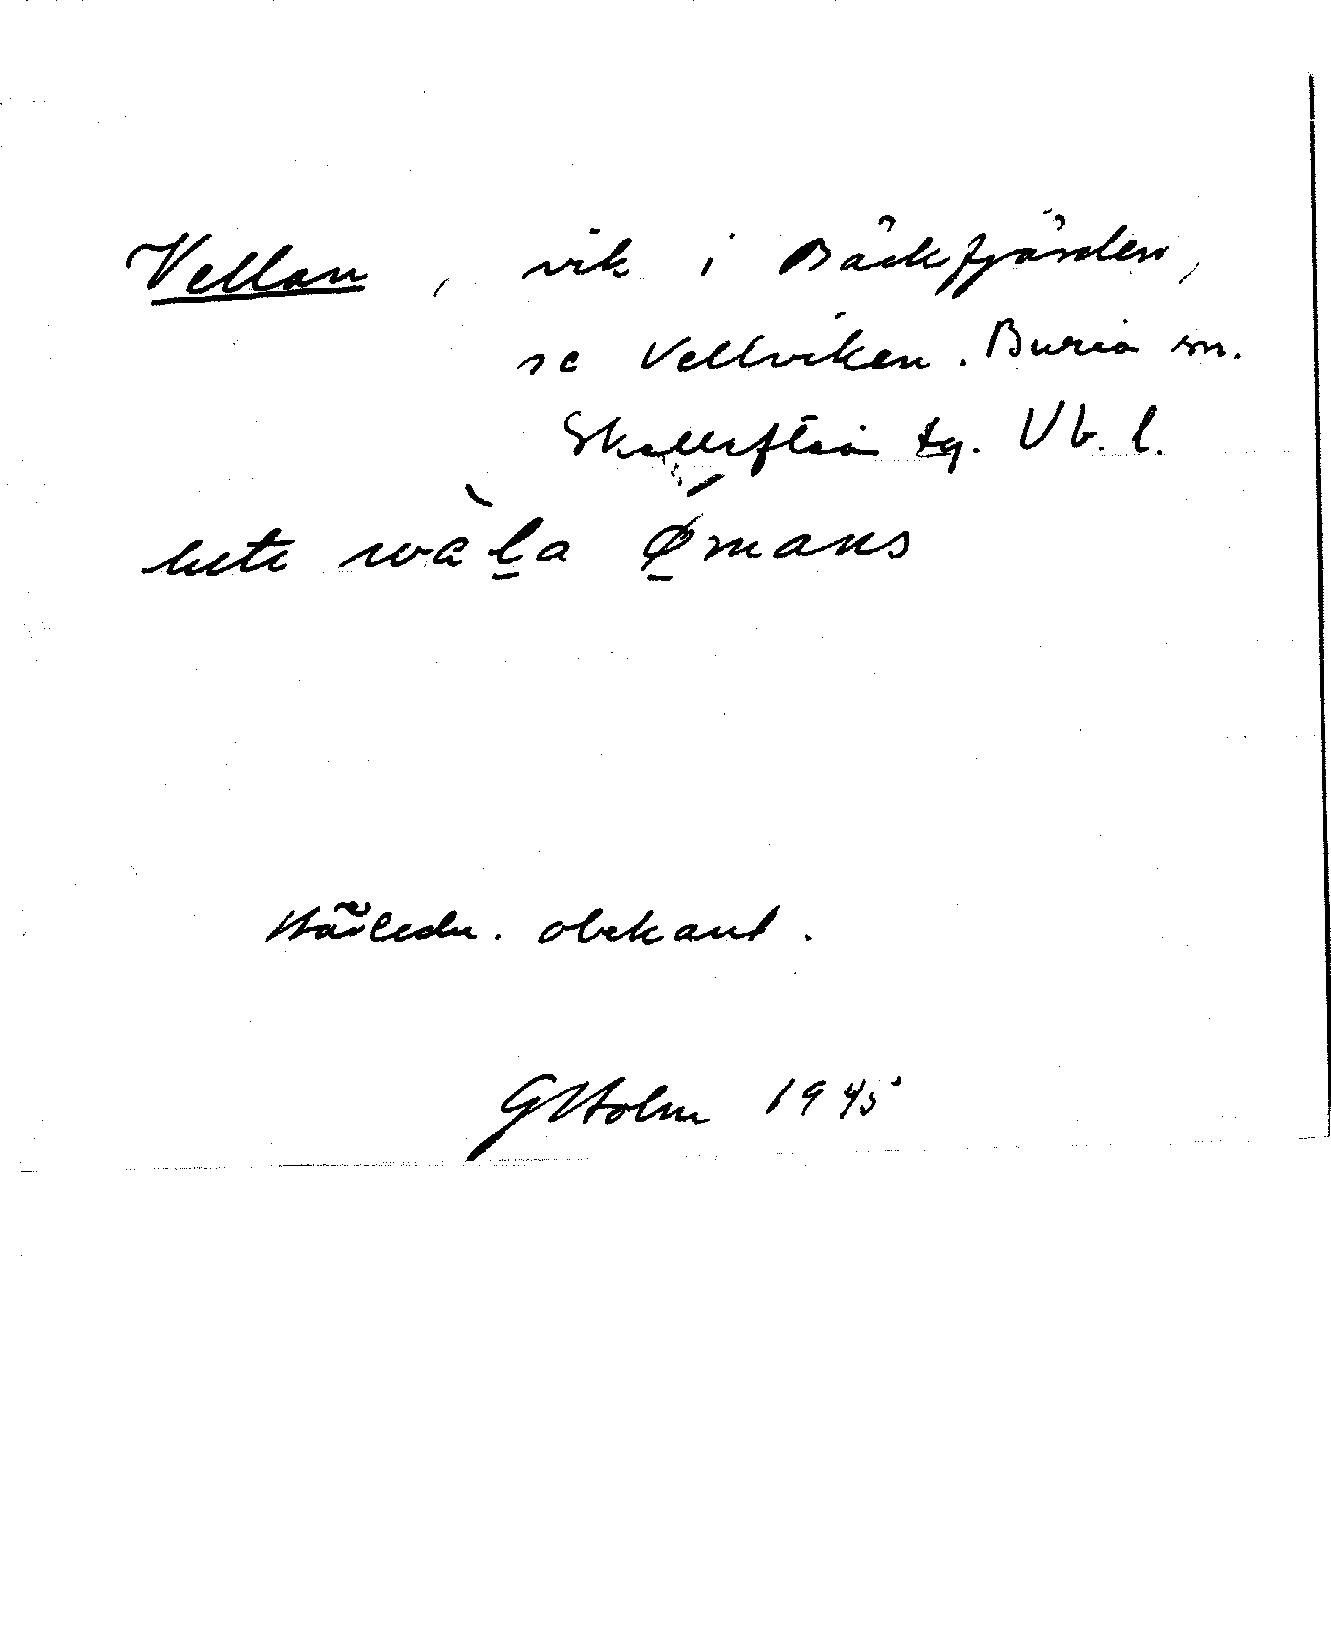 Vellan, vik i Bäckfjärden,
se Vellviken. Bureå sn.
Skellefteå tg. Vb. l.
Härledn. obekant.
G Holm 1945